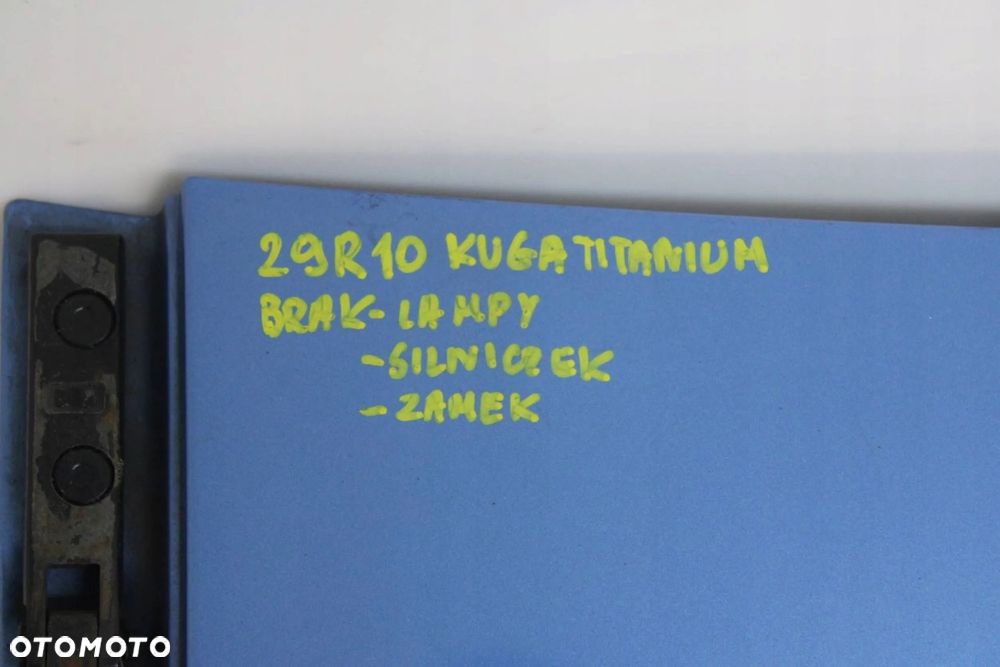 29R10 KUGA TITANIUM
BRAK - LAMPY
- SILNICZEK
- ZAMEK
OTOMOTO